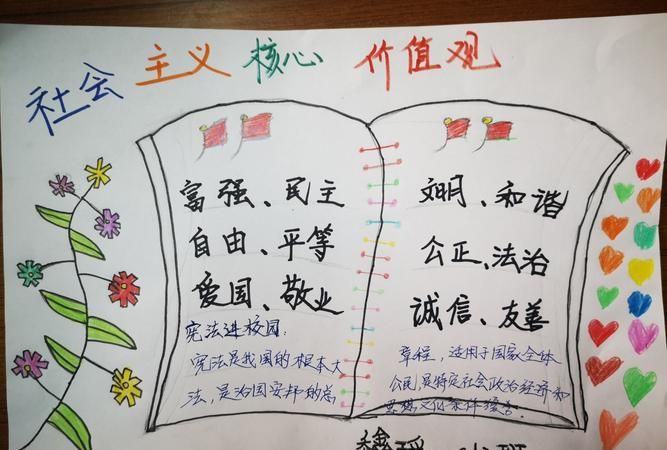 社会 主义 核心 价值观
富强、民主
自由、平等
爱国、敬业
宪法进校园:
宪法是我国的根本大
法,是治国安邦的总
文明、和谐
公正、法治
诚信、友善
章程,适用于国家全体
公民,是特定社会政治经济和
思想文化条件综合